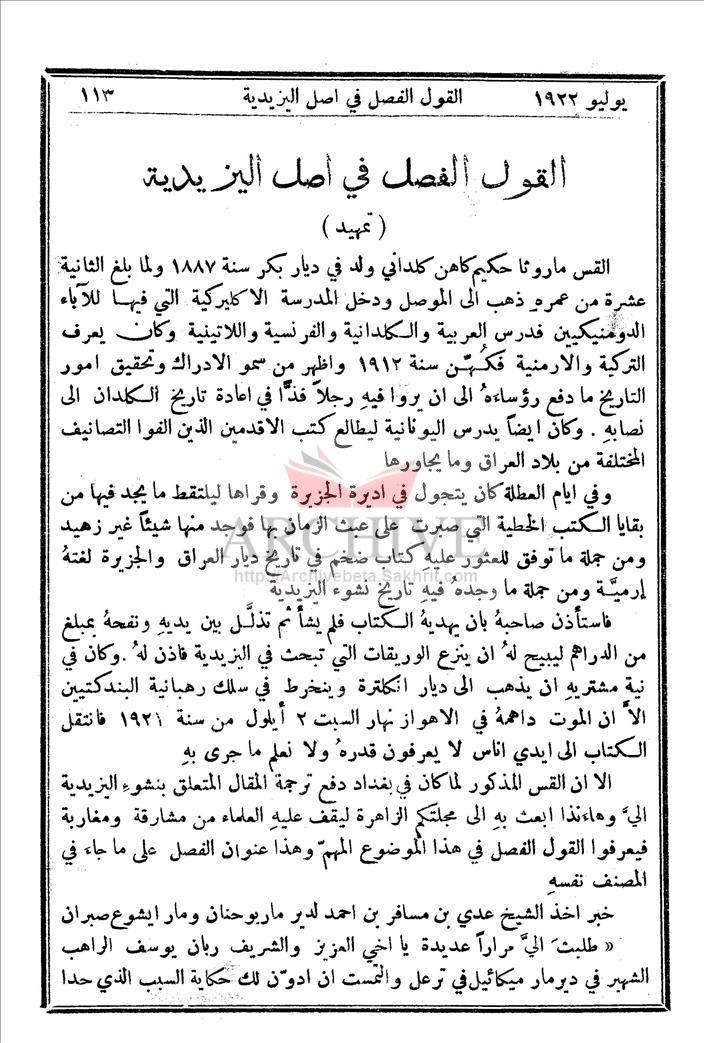 يوليو ١٩٢٢ القول الفصل في اصل اليزيدية ١١٣
القول الفصل في اصل اليزيدية
( تمهيد )
القس ماروثا حكيم كاهن كلداني ولد في ديار بكر سنة ١٨٨٧ ولما بلغ الثانية
عشرة من عمره ذهب الى الموصل ودخل المدرسة الاكليركية التي فيها للآباء
الدومنيكيين فدرس العربية والكلدانية والفرنسية واللاتينية وكان يعرف
التركية والارمنية فكُهّن سنة ١٩١٢ واظهر من سمو الادراك وتحقيق امور
التاريخ ما دفع رؤساءهُ الى ان يروا فيهِ رجلاً فذًّا في اعادة تاريخ الكلدان الى
نصابهِ . وكان ايضاً يدرس اليونانية ليطالع كتب الاقدمين الذين الفوا التصانيف
المختلفة من بلاد العراق وما يجاورها
وفي ايام العطلة كان يتجول في اديرة الجزيرة وقراها ليلتقط ما يجد فيها من
بقايا الكتب الخطية التي صبرت على عبث الزمان بها فوجد منها شيئاً غير زهيد
ومن جملة ما توفق للعثور عليهِ كتاب ضخم في تاريخ ديار العراق والجزيرة لغتهُ
إرميَّة ومن جملة ما وجده فيهِ تاريخ نشوء اليزيدية
فاستأذن صاحبهُ بان يهديهُ الكتاب فلم يشأ ثم تذلَّل بين يديهِ ونفحهُ بمبلغ
من الدراهم ليبيح لهُ ان ينزع الوريقات التي تبحث في اليزيدية فاذن لهُ . وكان في
نية مشتريهِ ان يذهب الى ديار انكلترة وينخرط في سلك رهبانية البندكتيين
الاَّ ان الموت داهمهُ في الاهواز نهار السبت ٢ أيلول من سنة ١٩٢١ فانتقل
الكتاب الى ايدي اناس لا يعرفون قدرهُ ولا نعلم ما جرى بهِ
الا ان القس المذكور لما كان في بغداد دفع ترجمة المقال المتعلق بنشوءِ اليزيدية
اليَّ وهاءنذا ابعث بهِ الى مجلتكم الزاهرة ليقف عليهِ العلماء من مشارقة ومغاربة
فيعرفوا القول الفصل في هذا الموضوع المهمّ وهذا عنوان الفصل على ما جاءَ في
المصنف نفسهِ
خبر اخذ الشيخ عدي بن مسافر بن احمد لدير مار يوحنان ومار ايشوع صبران
« طلبتَ اليَّ مراراً عديدة يا اخي العزيز والشريف ربان يوسف الراهب
الشهير في دير مار ميكائيل في ترعل والتمست ان ادوّن لك حكاية السبب الذي حدا
ARCHIVE
http://Archivebeta.Sakhrit.com